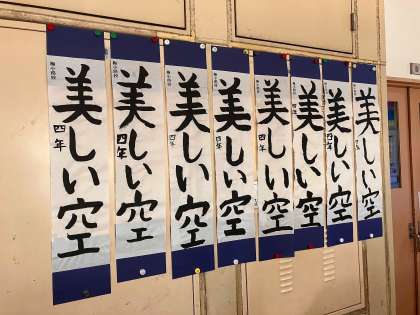 美しい空
四年
美しい空
四年
美しい空
四年
美しい空
四年
美しい空
四年
美しい空
美しい空
四年
美しい空